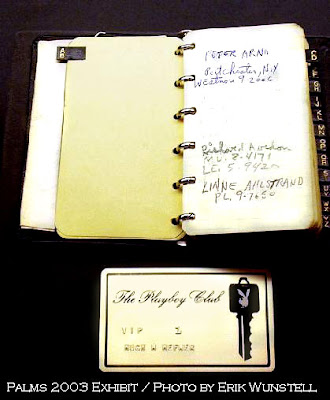 A
B
PETER ARNO
Portchester, N.Y.
WEstmore 9 2006
Richard Avedon
MU. 8-4171
LE. 5-9420
LINNE AHLSTRAND
PL. 9-7650
The Playboy Club
VIP 1
HUGH M HEFNER
PALMS 2003 EXHIBIT / PHOTO BY ERIK WUNSTELL